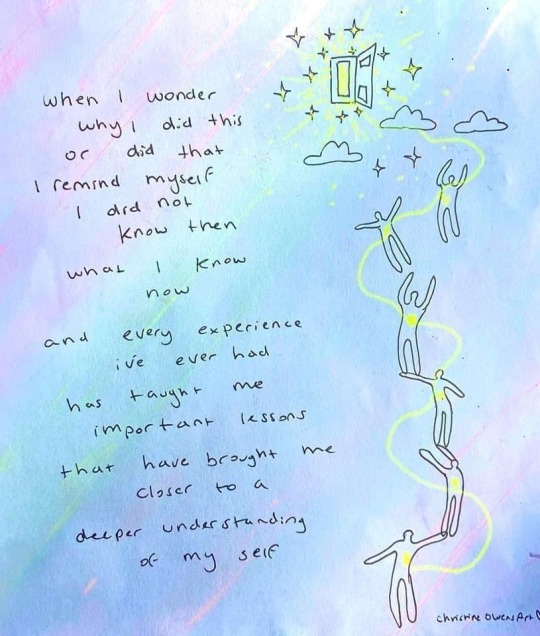 when I wonder
why I did this
or did that
I remind myself
I did not
know then
what I know
now
and every experience
ive ever had
has taught me
important lessons
that have brought me
closer to a
deeper understanding
of my self
Christine Owens Art